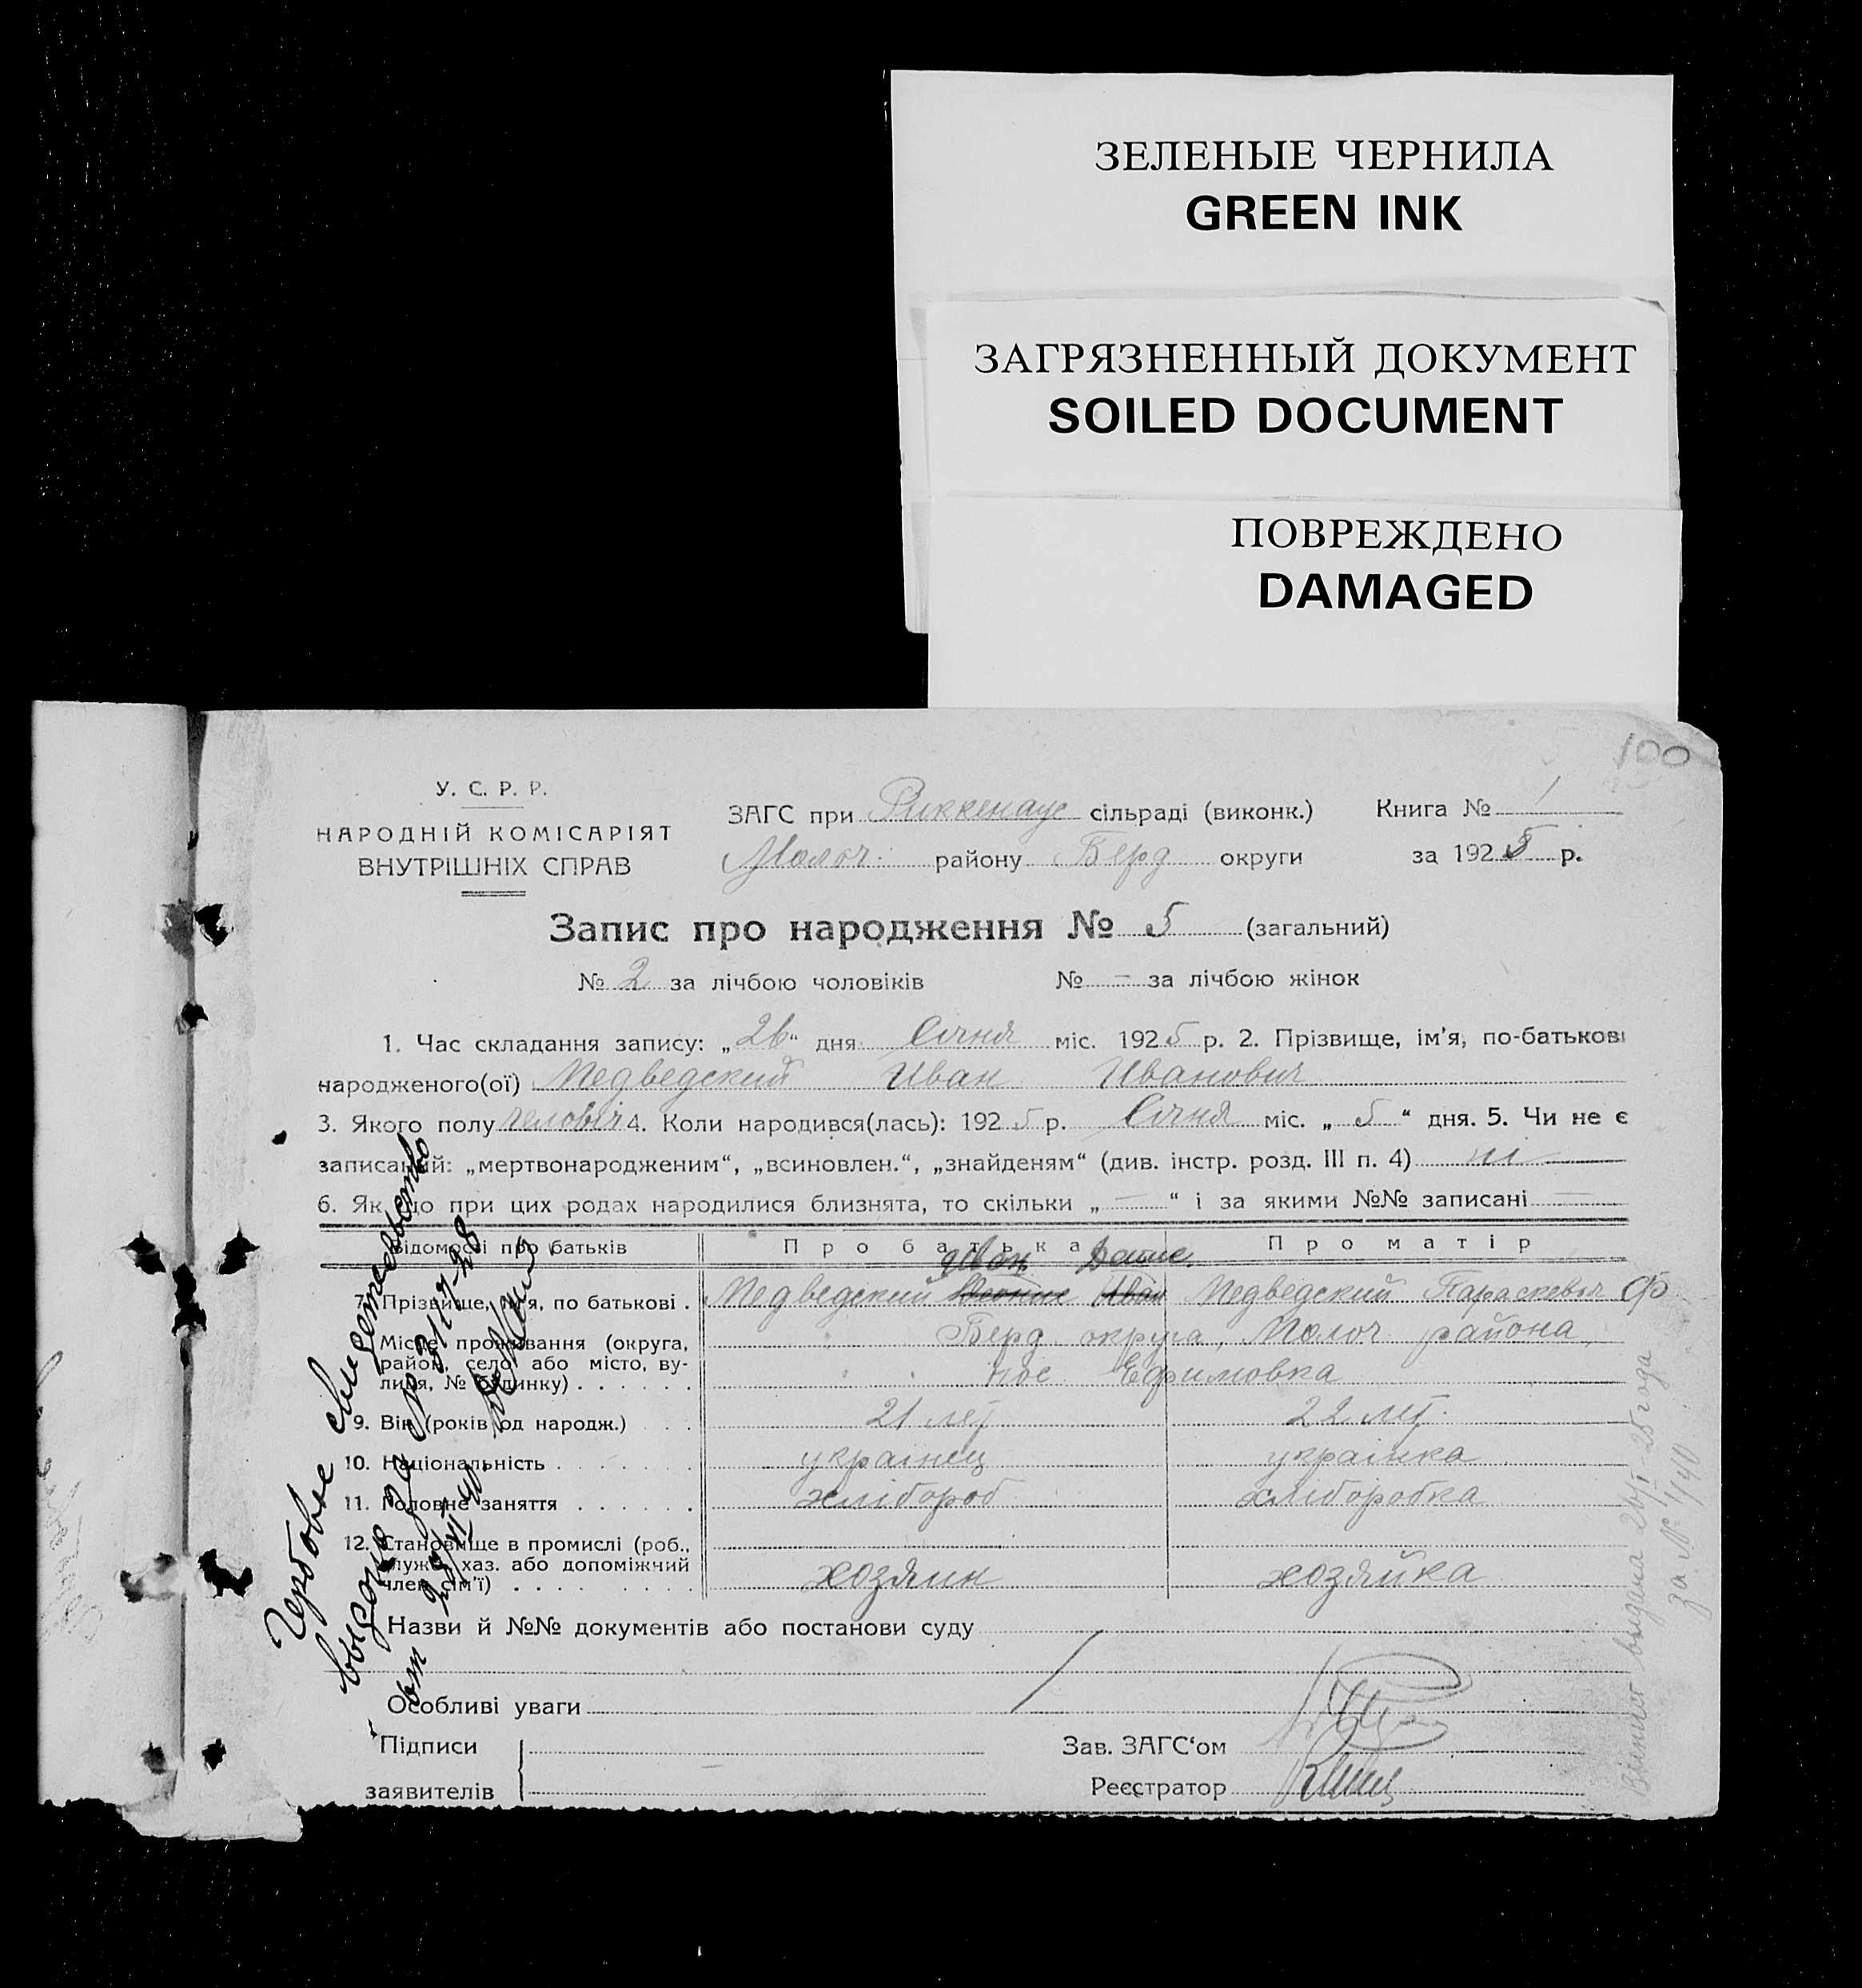 ЗЕЛЕНЫЕ ЧЕРНИЛА
GREEN INK
ЗАГРЯЗНЕННЫЙ ДОКУМЕНТ
SOILED DOCUMENT
ПОВРЕЖДЕНО
DAMAGED
100
У. С. Р. Р.
НАРОДНІЙ КОМІСАРІЯТ
ВНУТРІШНІХ СПРАВ
ЗАГС при Риккенауе сільраді (виконк.) Книга № 1
Молоч. району Берд округи за 1925 р.
Запис про народження № 5 (загальний)
№ 2 за лічбою чоловіків № — за лічбою жінок
1. Час складання запису: „26“ дня Січня міс. 1925 р. 2. Прізвище, ім'я, по-батькові
народженого(ої) Медведский Иван Иванович
3. Якого полу человіч 4. Коли народився(лась): 1925 р. Січня міс. „5“ дня. 5. Чи не є
записаний: „мертвонародженим“, „всиновлен.“, „знайденям“ (див. інстр. розд. III п. 4) ні
6. Якщо при цих родах народилися близнята, то скільки „—“ і за якими №№ записані —
Відомості про батьків Про батька Про матір
Иван
7. Прізвище, ім'я, по батькові . Медведский Иван Медведский Параскевья Ф
Місце проживання (округа, Берд округа, Молоч района,
район, село або місто, ву-
лиця, № будинку) . . . . . . пос Ефимовка
9. Вік (років од народж.) . . . 21 лет 22 лет.
10. Національність . . . . . . украінец украінка
11. Головне заняття . . . . . . хлібороб хліборобка
12. Становище в промислі (роб.,
служ., хаз. або допоміжний
член сім'ї) . . . . . . хозяин хозяйка
Назви й №№ документів або постанови суду
Особливі уваги
Підписи
заявителів
Зав. ЗАГС‘ом
Реєстратор
Гербовое свидетельство
выдано за №
от
выдана 26/I-25 года
за № 1/40